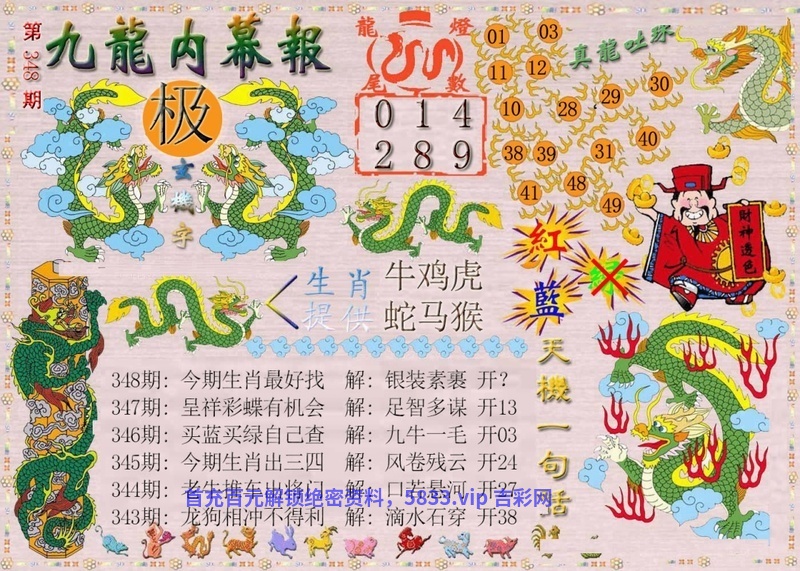 第348期
九龍内幕報
极
玄機字
龍燈
尾數
0 1 4
2 8 9
01 03
11 12
真龍吐珠
10 28 29 30
38 39 31 40
41 48 49
財神透色
紅
藍
生肖 牛鸡虎
提供 蛇马猴
天機一句话
348期: 今期生肖最好找 解: 银装素裹 开?
347期: 呈祥彩蝶有机会 解: 足智多谋 开13
346期: 买蓝买绿自己查 解: 九牛一毛 开03
345期: 今期生肖出三四 解: 风卷残云 开24
344期: 老牛推车出将门 解: 口若悬河 开27
首充百元解锁绝密资料，5833.vip 吉彩网
343期: 龙狗相冲不得利 解: 滴水石穿 开38